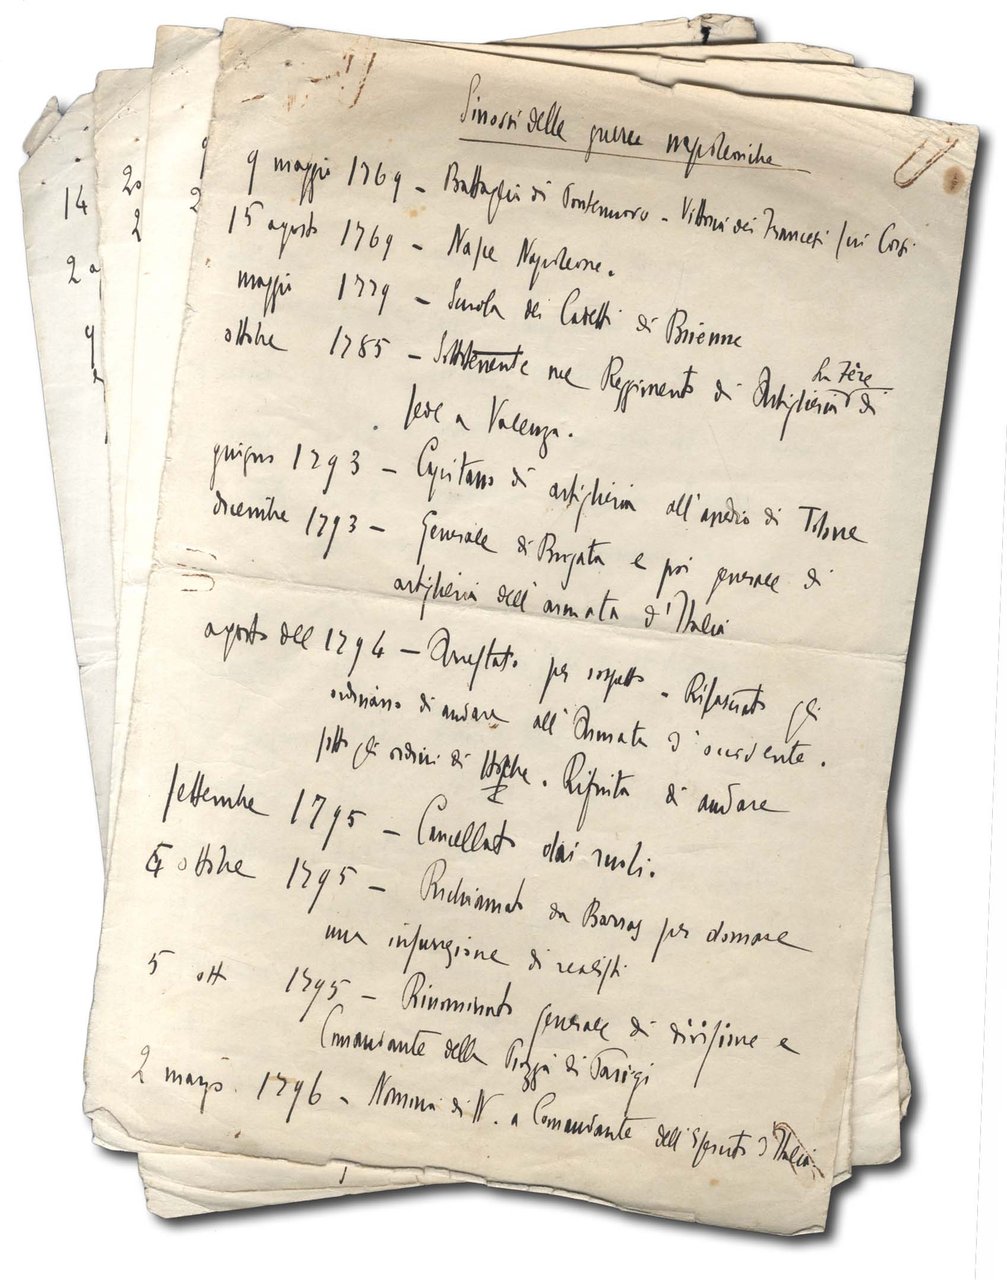 Sinossi delle guerre napoleoniche
9 maggio 1769 - Battaglia di Pontenuovo - Vittoria dei Francesi sui Corsi
15 agosto 1769 - Nasce Napoleone.
maggio 1779 - Scuola dei Cadetti di Brienne
La Fère
ottobre 1785 - Sottotenente nel Reggimento di Artiglieria di
sede a Valenza.
giugno 1793 - Capitano di artiglieria all'assedio di Tolone
dicembre 1793 - Generale di Brigata e poi generale di
artiglieria dell'armata d'Italia
agosto del 1794 - Arrestato per sospetto - Rilasciato gli
ordinano di andare all'Armata d'occidente.
sotto gli ordini di Hoche. Rifiuta di andare
settembre 1795 - Cancellato dai ruoli.
4 ottobre 1795 - Richiamato da Barras per domare
una insurrezione di realisti
5 ott 1795 - Rinominato generale di divisione e
Comandante della Piazza di Parigi
2 marzo 1796 - Nomina di N. a Comandante dell'Esercito d'Italia
14
2 a
9
20
2
9
2